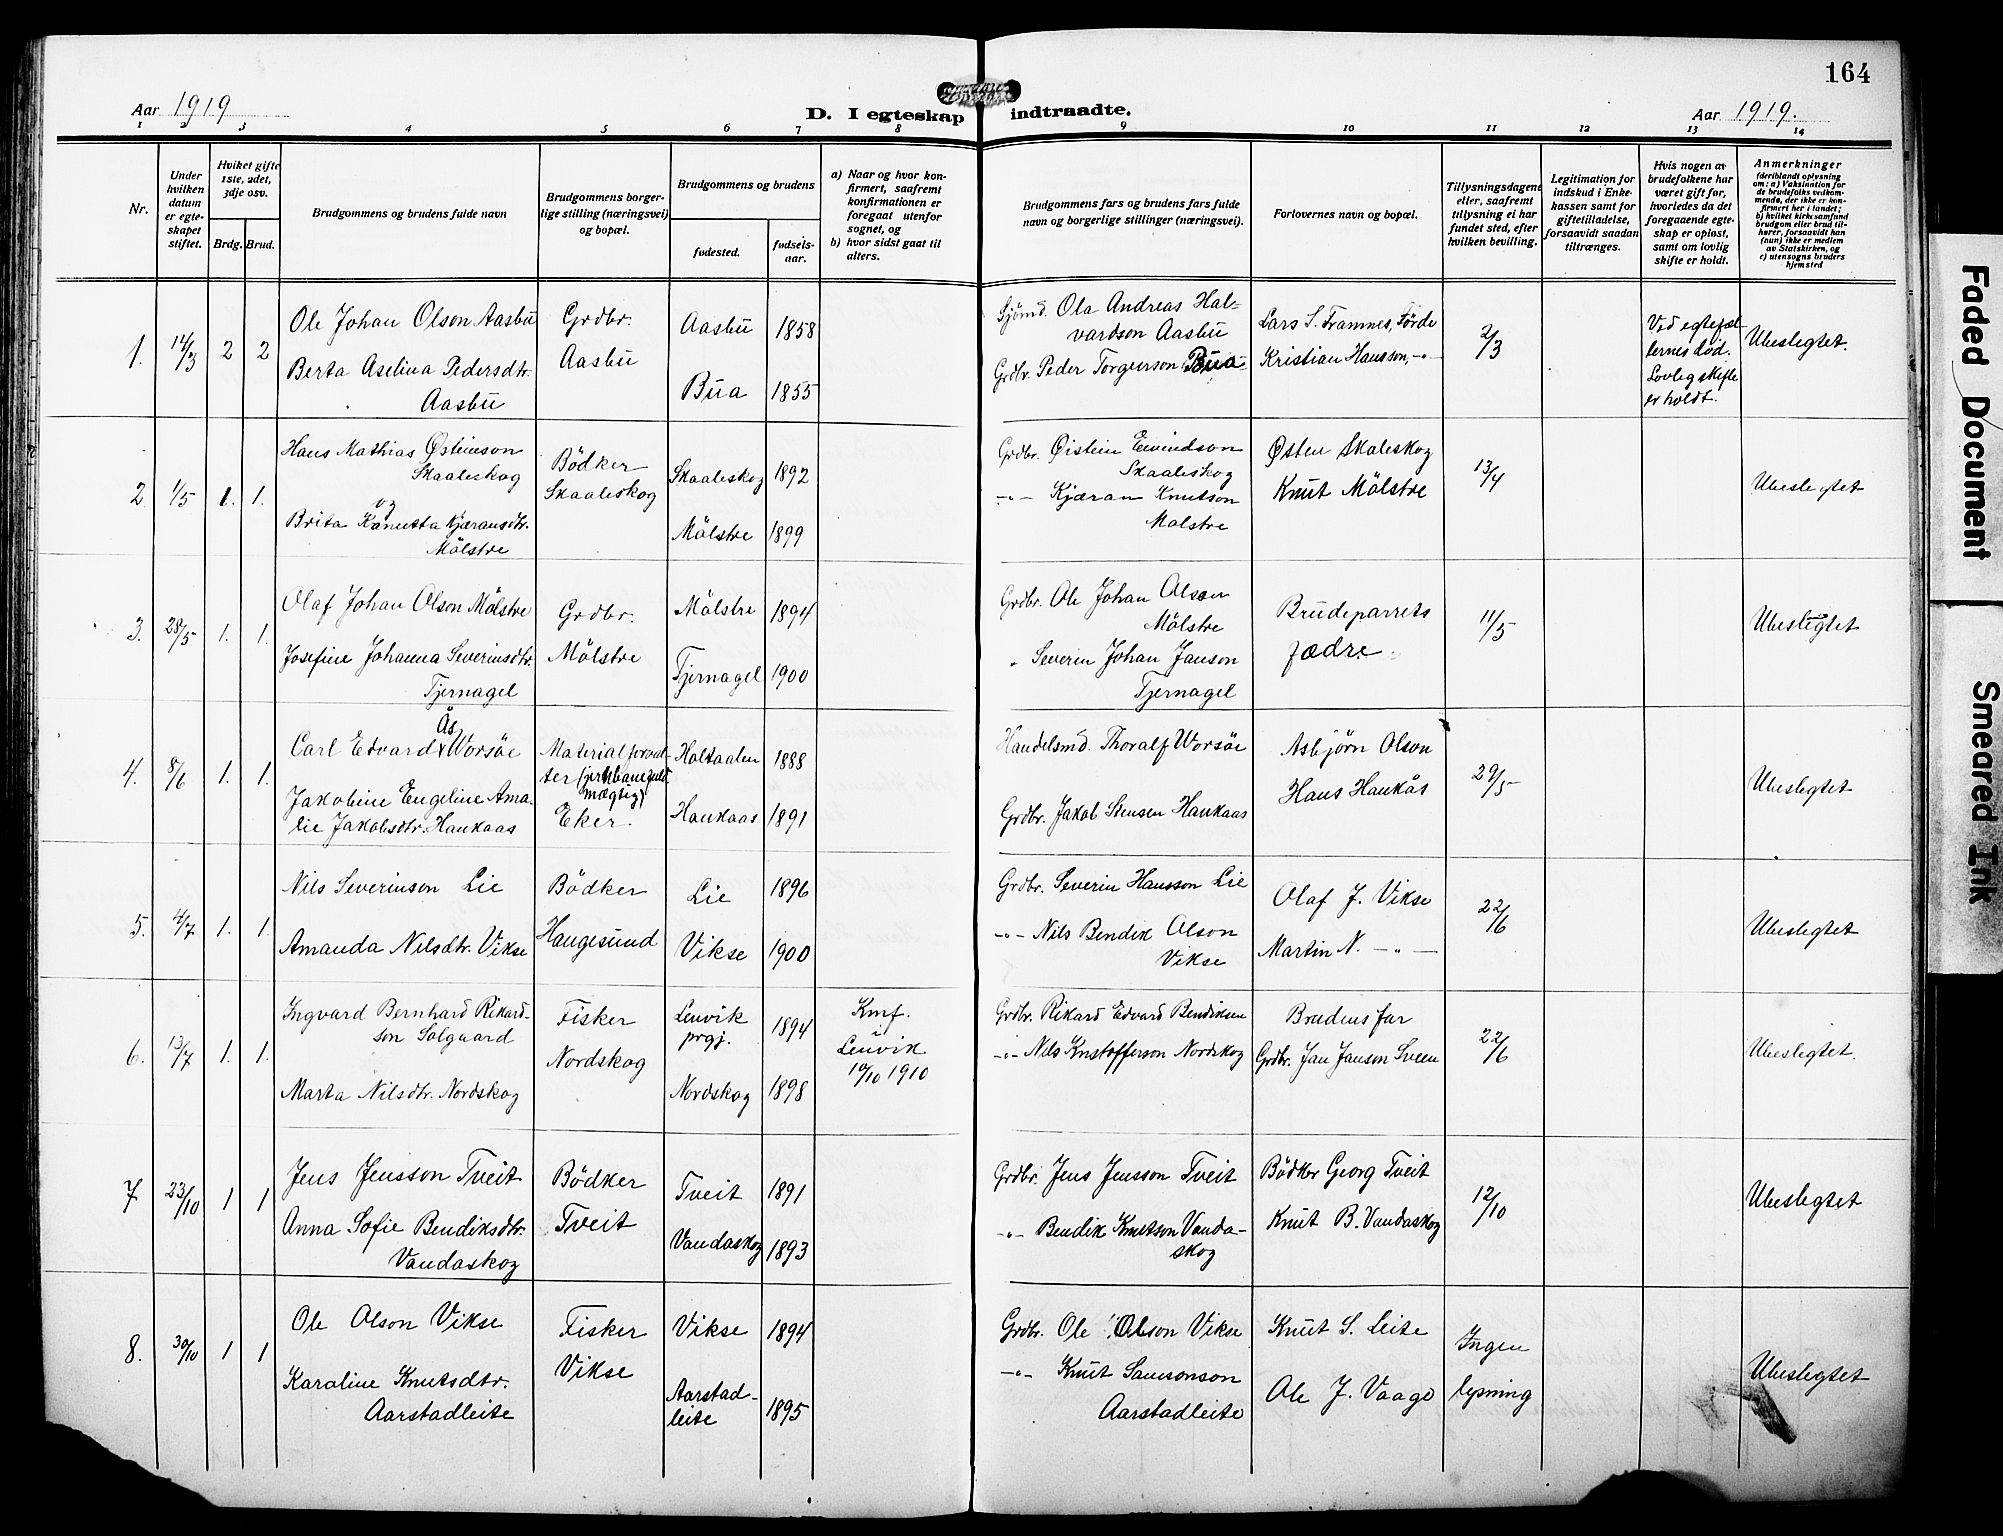 164
Aar 1919
D. I egteskap indtraadte.
Aar 1919.
1 2 3 4 5 6 7 8 9 10 11 12 13 14
Nr.
Under hvilken datum er egteskapet stiftet.
Hvilket gifte 1ste, 2det, 3dje osv.
Brdg. Brud.
Brudgommens og brudens fulde navn
Brudgommens borgerlige stilling (næringsvei) og bopæl.
Brudgommens og brudens
fødested.
fødselsaar.
a) Naar og hvor konfirmert, saafremt konfirmationen er foregaat utenfor sognet, og
b) hvor sidst gaat til alters.
Brudgommens fars og brudens fars fulde navn og borgerlige stillinger (næringsvei).
Forlovernes navn og bopæl.
Tillysningsdagene eller, saafremt tillysning ei har fundet sted, efter hvilken bevilling.
Legitimation for indskud i Enkekassen samt for giftetilladelse, forsaavidt saadan tiltrænges.
Hvis nogen av brudefolkene har været gift før, hvorledes da det foregaaende egteskap er opløst, samt om lovlig skifte er holdt.
Anmerkninger
(deriblandt oplysning om: a) Vaksination for de brudefolks vedkommende, der ikke er konfirmert her i landet; b) hvilket kirkesamfund brudgom eller brud tilhører, forsaavidt han (hun) ikke er medlem av Statskirken, og c) utensogns bruders hjemsted
1. 14/3 2 2
Ole Johan Olson Aasbu
Berta Aselina Pedersdtr. Aasbu
Grdbr. Aasbu
Aasbu 1858
Bua 1855
Sjömd. Ola Andreas Halvardson Aasbu
Grdbr. Peder Torgerson Bua
Lars S. Framnes, Förde
Kristian Hansson, -"-
2/3
Ved egtefællernes död. Lovleg skifte er holdt.
Ubeslegtet.
2 1/5 1. 1.
Hans Mathias Østeinson Skaaleskog
og
Brita Kanutta Kjæransdtr. Mölstre
Bödker Skaaleskog
Skaaleskog 1892
Mölstre 1899
Grdbr. Øistein Eivindson Skaaleskog
-"- Kjæran Knutson Mølstre
Østen Skaleskog
Knut Mölstre
13/4
Ubeslegtet
3. 28/5 1. 1.
Olaf Johan Olson Mölstre
Josefine Johanna Severinsdtr. Tjernagel
Grdbr. Mölstre
Mölstre 1894
Tjernagel 1900
Grdbr. Ole Johan Olson Mölstre
" Severin Johan Janson Tjernagel
Brudeparrets fædre.
11/5
Ubeslegtet
4. 8/6 1. 1.
Carl Edvard Ås Worsöe
Jakobine Engeline Amalie Jakobsdtr. Haukaas
Materialforvalter (jernbanefuldmægtig) Eker.
Holtaalen 1888
Haukaas 1891
Handelsmd. Thoralf Worsöe
Grdbr. Jakob Stensen Haukaas
Asbjørn Olson
Hans Haukås
29/5
Ubeslegtet
5. 4/7 1. 1.
Nils Severinson Lie
Amanda Nilsdtr. Vikse
Bödker Haugesund
Lie 1896
Vikse 1900
Grdbr. Severin Hansson Lie
-"- Nils Bendik Olson Vikse
Olaf J. Vikse
Martin N. -"-
22/6
Ubeslegtet
6. 13/7 1. 1.
Ingvard Bernhard Rikardson Solgaard
Marta Nilsdtr. Nordskog
Fisker Nordskog
Lenvik prgj. 1894
Nordskog 1898
Kmf. i Lenvik 10/10 1910
Grdbr. Rikard Edvard Bendiksen
-"- Nils Kristofferson Nordskog
Brudens far
Grdbr. Jan Janson Sveen
22/6
Ubeslegtet.
7 23/10 1 1
Jens Jensson Tveit
Anna Sofie Bendiksdtr. Vandaskog
Bödker Tveit
Tveit 1891
Vandaskog 1893
Grdbr. Jens Jensson Tveit
-"- Bendik Knutson Vandaskog
Bödker Georg Tveit
Knut B. Vandaskog
12/10
Ubeslegtet
8. 30/10 1 1
Ole Olson Vikse
Karoline Knutsdtr. Aarstadleite
Fisker Vikse
Vikse 1894
Aarstadleite 1895
Grdbr. Ole Olson Vikse
-"- Knut Samsonson Aarstadleite
Knut S. Leite
Ole J. Vaage
Ingen lysning
Ubeslegtet
Faded Document
Smeared Ink